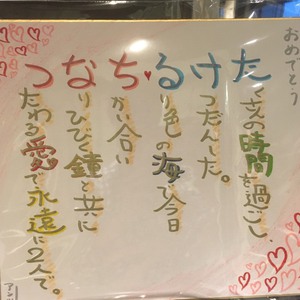 おめでとう
たくさんの時間を過ごし、
けつだんした。
るり色の海で今日
ちかい合い
なりひびく鐘と共に
つたわる愛で永遠に2人で。